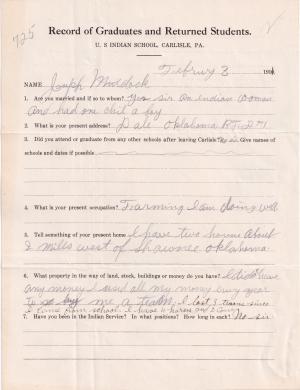 725
Record of Graduates and Returned Students.
U. S INDIAN SCHOOL, CARLISLE, PA.
Februry 3 191
NAME Joseph Murdock
1. Are you married and if so to whom? Yes sir An indian woman
And had on chil a boy
2. What is your present address? Dale Oklahoma R.F.D #1
3. Did you attend or graduate from any other schools after leaving Carlisle? No sir Give names of
schools and dates if possible
4. What is your present occupation? Farming I am doing well
5. Tell something of your present home I have two homes About
2 miles west of Shawnee Oklahoma
6. What property in the way of land, stock, buildings or money do you have? I didn't have
any money I used all my money every year
to buy me a team, I lost 3 teams since
I came from school. I have 4 horses and 2
7. Have you been in the Indian Service? In what positions? How long in each? No sir